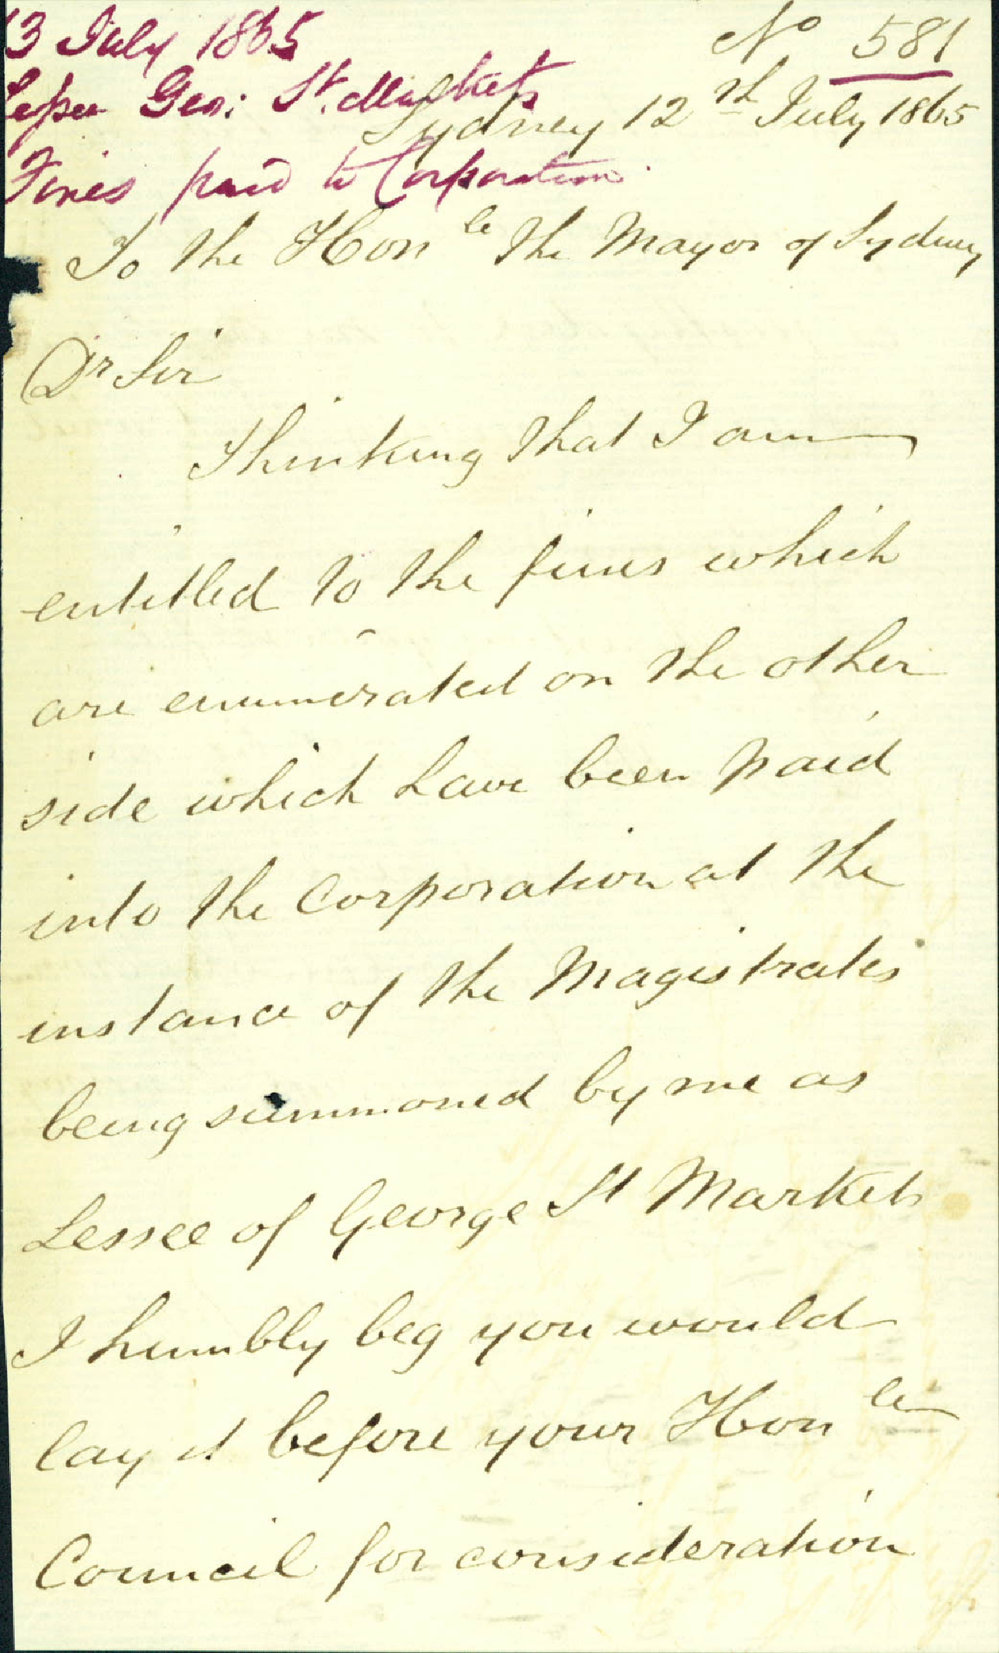 13 July 1865
Lessee Geo: St. Markets
Fines paid to Corporation
No 581
Sydney 12th July 1865
To the Honle The Mayor of Sydney
Dr Sir
Thinking that I am
entitled to the fines which
are enumerated on the other
side which have been paid
into the Corporation at the
instance of the Magistrates
being summoned by me as
Lessee of George St Markets
I humbly beg you would
lay it before your Honle
Council for consideration